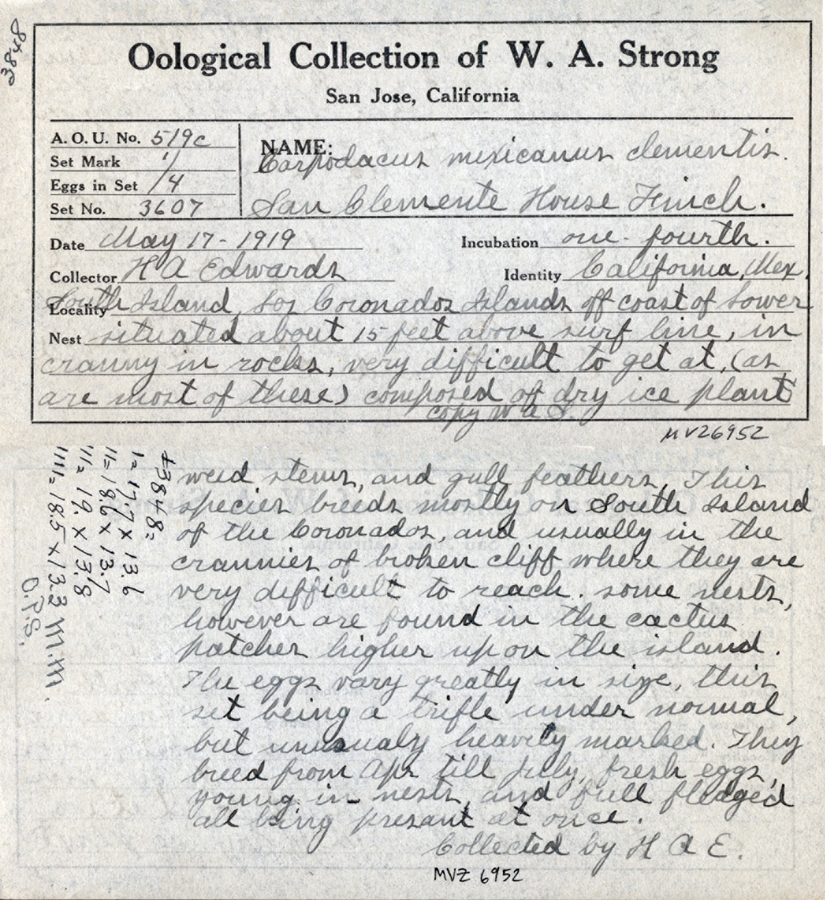 3848
Oological Collection of W. A. Strong
San Jose, California
A. O. U. No. 519c
Set Mark 1/
Eggs in Set /4
Set No. 3607
NAME:
Carpodacus mexicanus clementis.
San Clemente House Finch.
Date May 17-1919
Incubation one-fourth.
Collector H A Edwards
Identity California, Mex.
Locality South Island, Los Coronados Islands off coast of Lower
Nest situated about 15 feet above surf line, in
cranny in rocks, very difficult to get at, (as
are most of these) composed of dry ice plant
copy W a S.
MVZ6952
weed stems, and gull feathers, This
species breeds mostly on South Island
of the Coronados, and usually in the
crannies of broken cliff where they are
very difficult to reach. some nests,
however are found in the cactus
patches higher up on the island.
The eggs vary greatly in size, this
set being a trifle under normal,
but unusualy heavily marked. They
breed from Apr till July, fresh eggs,
young in nests, and full fledged
all being presant at once.
Collected by H A E.
MVZ 6952
#3848=
1= 17.7 x 13.6
11= 18.6 x 13.7
111= 19. x 13.8
1111= 18.5 x 13.3 m.m.
O.P.S.